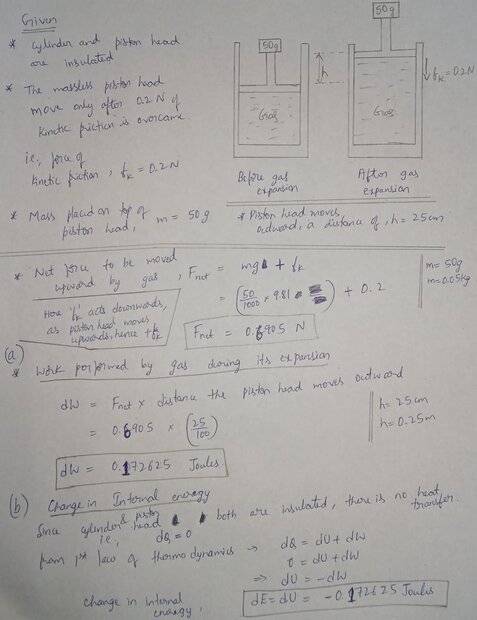 Given
* Cylinder and piston head
are insulated
* The massless piston head
move only after 0.2 N of
kinetic friction is overcame
ie., force of
kinetic friction, fk = 0.2 N
* Mass placed on top of
piston head, m = 50 g
50g
h
Gas
Before gas
expansion
50g
fk = 0.2N
Gas
After gas
expansion
* Piston head moves
outward, a distance of, h = 25cm
* Net force to be moved
upward by gas, Fnet = mg + fk
= (50/1000 × 9.81) + 0.2
Fnet = 0.6905 N
m = 50g
m = 0.05kg
Here 'fk' acts downwards,
as piston head moves
upwards, hence +fk
(a)
* Work performed by gas during its expansion
dW = Fnet × distance the piston head moves outward
= 0.6905 × (25/100)
h = 25cm
h = 0.25m
dW = 0.172625 Joules
(b) Change in Internal energy
Since cylinder & piston head both are insulated, there is no heat transfer.
i.e., dQ = 0
from 1st law of thermodynamics → dQ = dU + dW
0 = dU + dW
⇒ dU = -dW
change in internal
energy, dE = dU = -0.172625 Joules